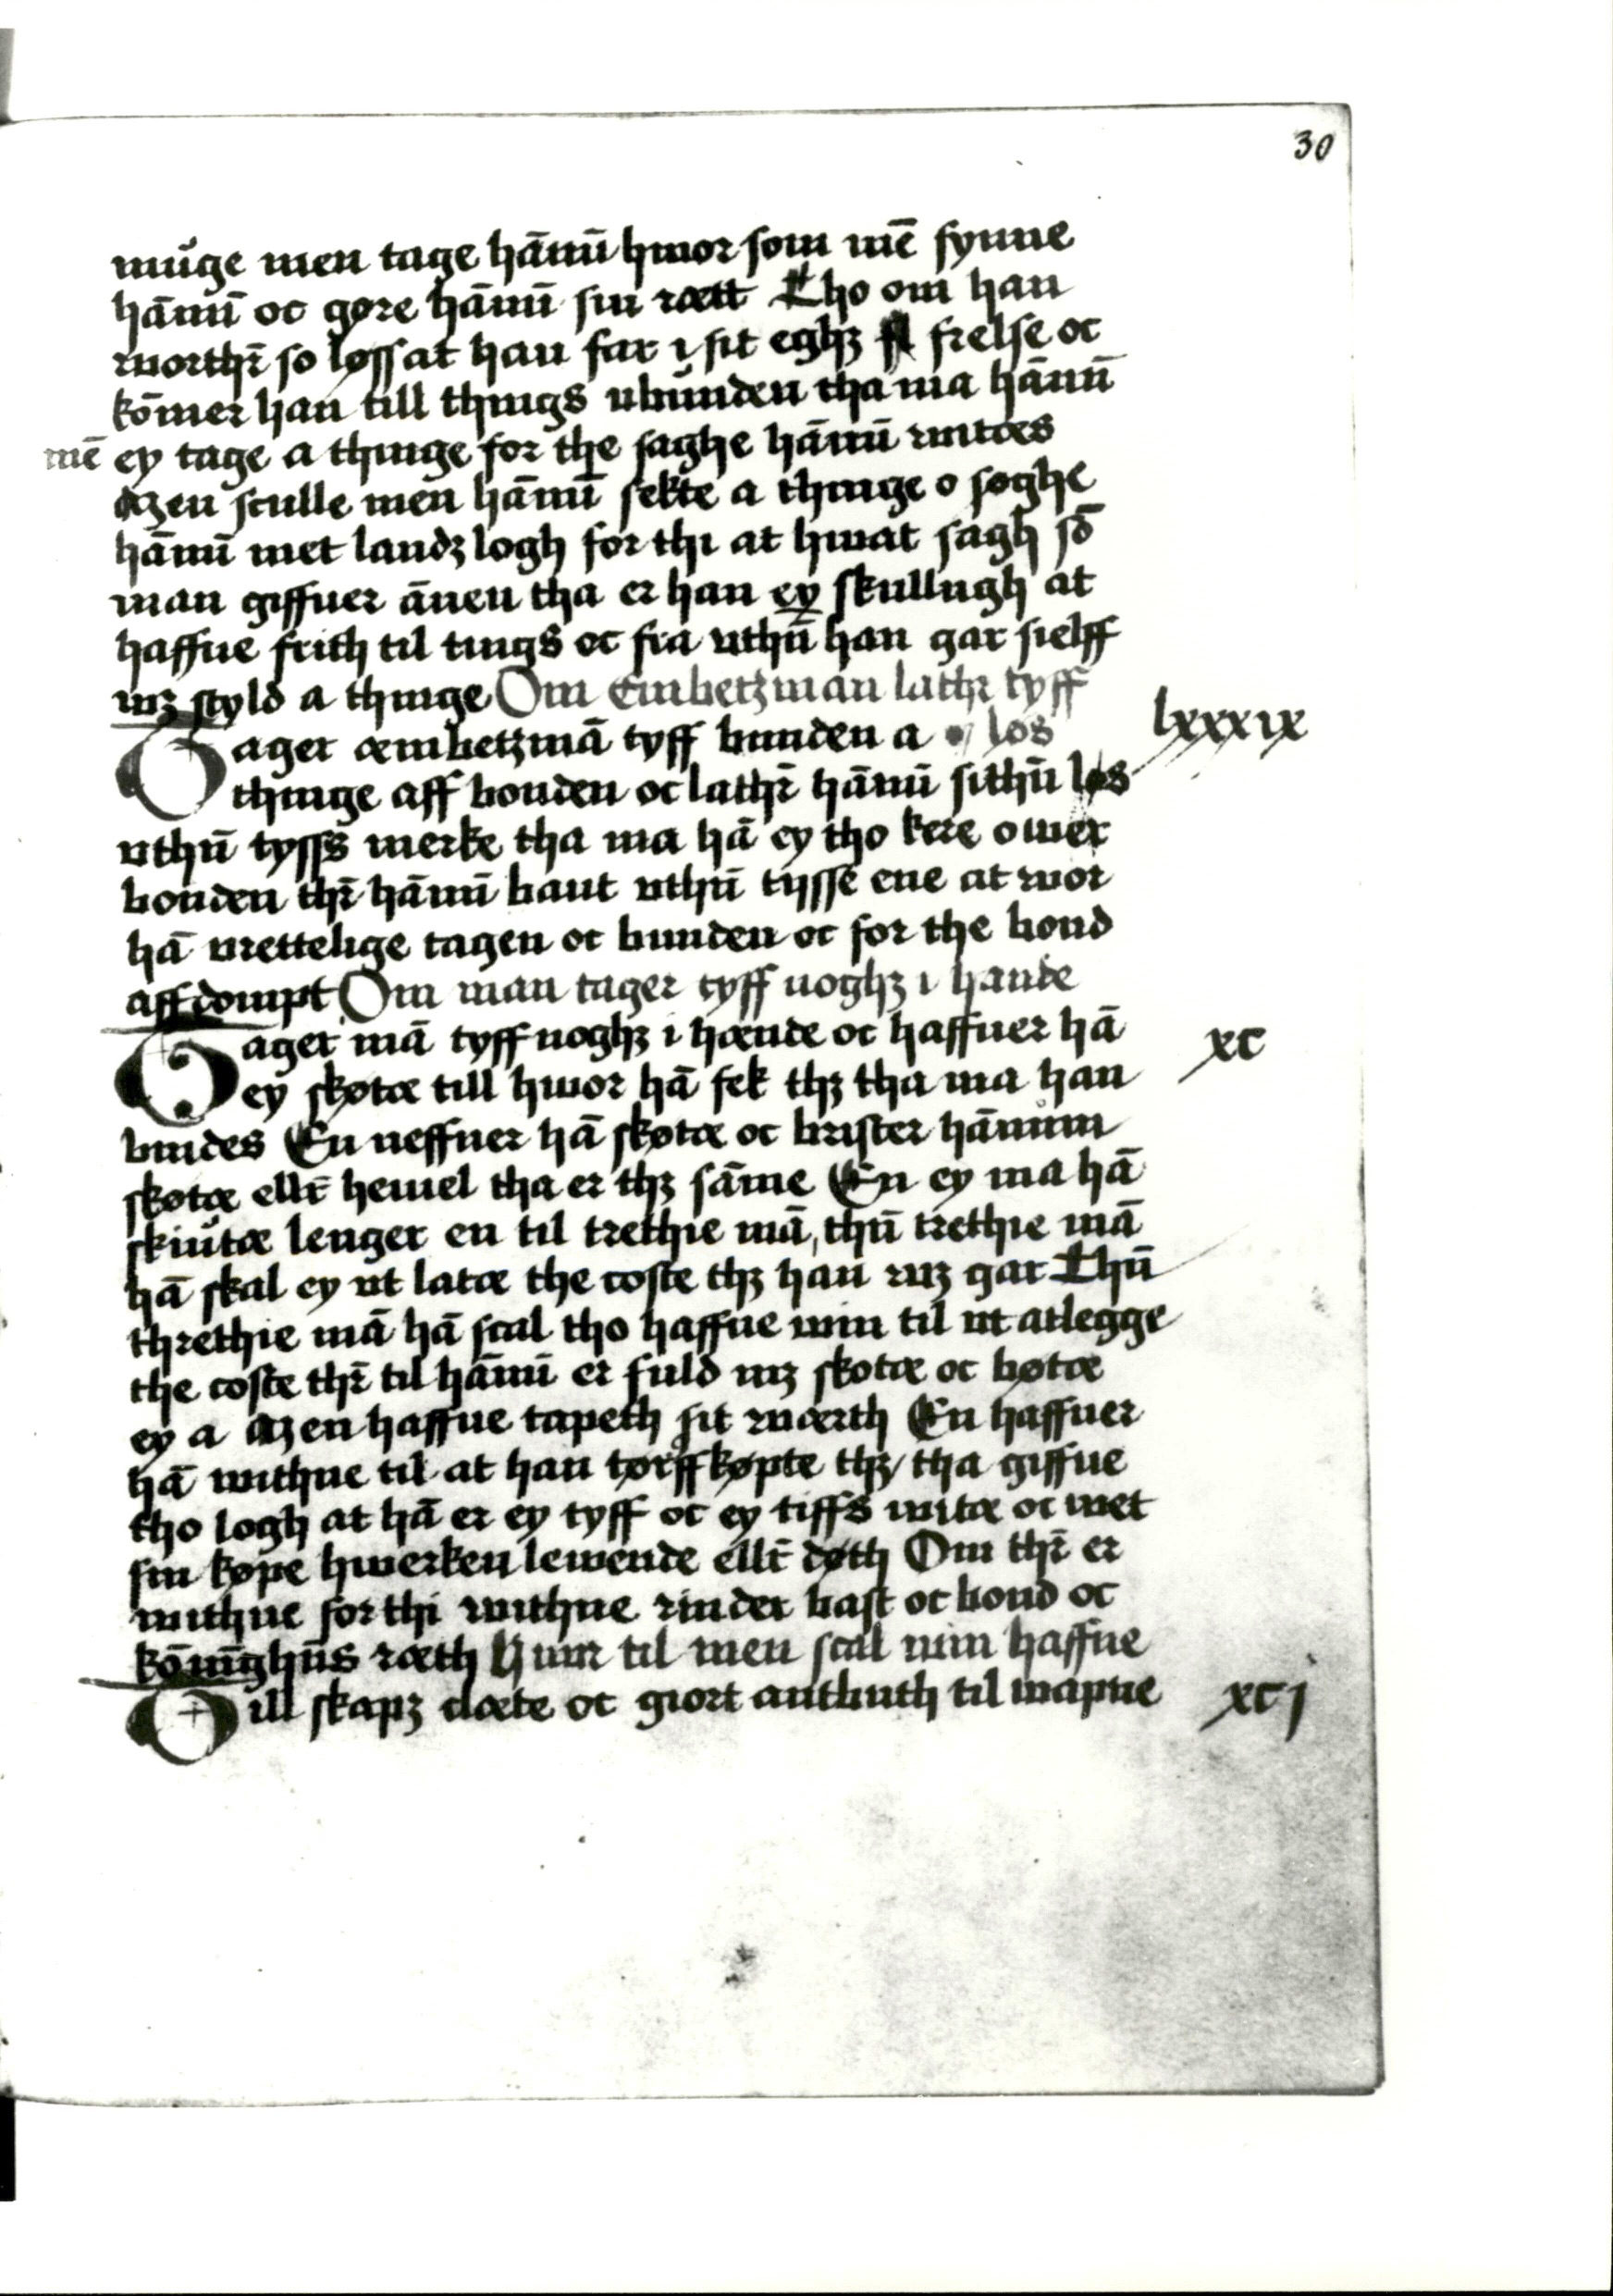 30
muge men tage hānū hwor som mē fynne
hānū oc gøre hānū sin rætt Tho om han
worthr̄ so løss at han far i sit eghꝫ frelse oc
kōmer han till things ubunden tha ma hānū
mē ey tage a thinge for the saghe hānū witæs
Men sculle men hānū sekte a thinge o søghe
hānū met landꝫ logh for thi at hwat sagh sō
man giffuer ānen tha er han ey skullugh at
haffue frith til tings oc fra uthū han gar sielff
mꝫ styld a thinge Om Embetꝫman lathr tyff
Tager æmbetꝫmā tyff bunden a los
lxxxix
thinge aff bonden oc lathr̄ hānū sithū løs
uthū tyffs merke tha ma hā ey tho kere ower
bonden thr̄ hānū bant uthū tysse ene at wor
hā urettelige tagen oc bunden oc for the bond
aff dømpt Om man tager tyff noghꝫ i hande
Tager mā tyff noghꝫ i hænde oc haffuer hā
xc
ey skøtæ till hwor hā fek thꝫ tha ma han
bindes En neffner hā skøtæ oc brister hānum
skøtæ ellr̄ hemel tha er thꝫ sāme En ey ma hā
skiutæ lenger en til trethie mā, thū trethie mā
hā skal ey ut latæ the coste thꝫ han wꝫ gar Thū
threthie mā hā scal tho haffue win til ut at legge
the coste thr̄ til hānū er fuld mꝫ skøtæ oc bøtæ
ey a Men haffue tapeth sit wærth En haffuer
hā withne til at han torffkøpte thꝫ / tha giffue
tho logh at hā er ey tyff oc ey tiffs witæ oc met
sin køpe hwerken lewende ellr̄ døth Om thr̄ er
withne for thi withne rinder bast oc bond oc
kōnīghūs ræth Hwar til men scal win haffue
Till skapꝫ clæte oc giort anbuth til wapne
xcj